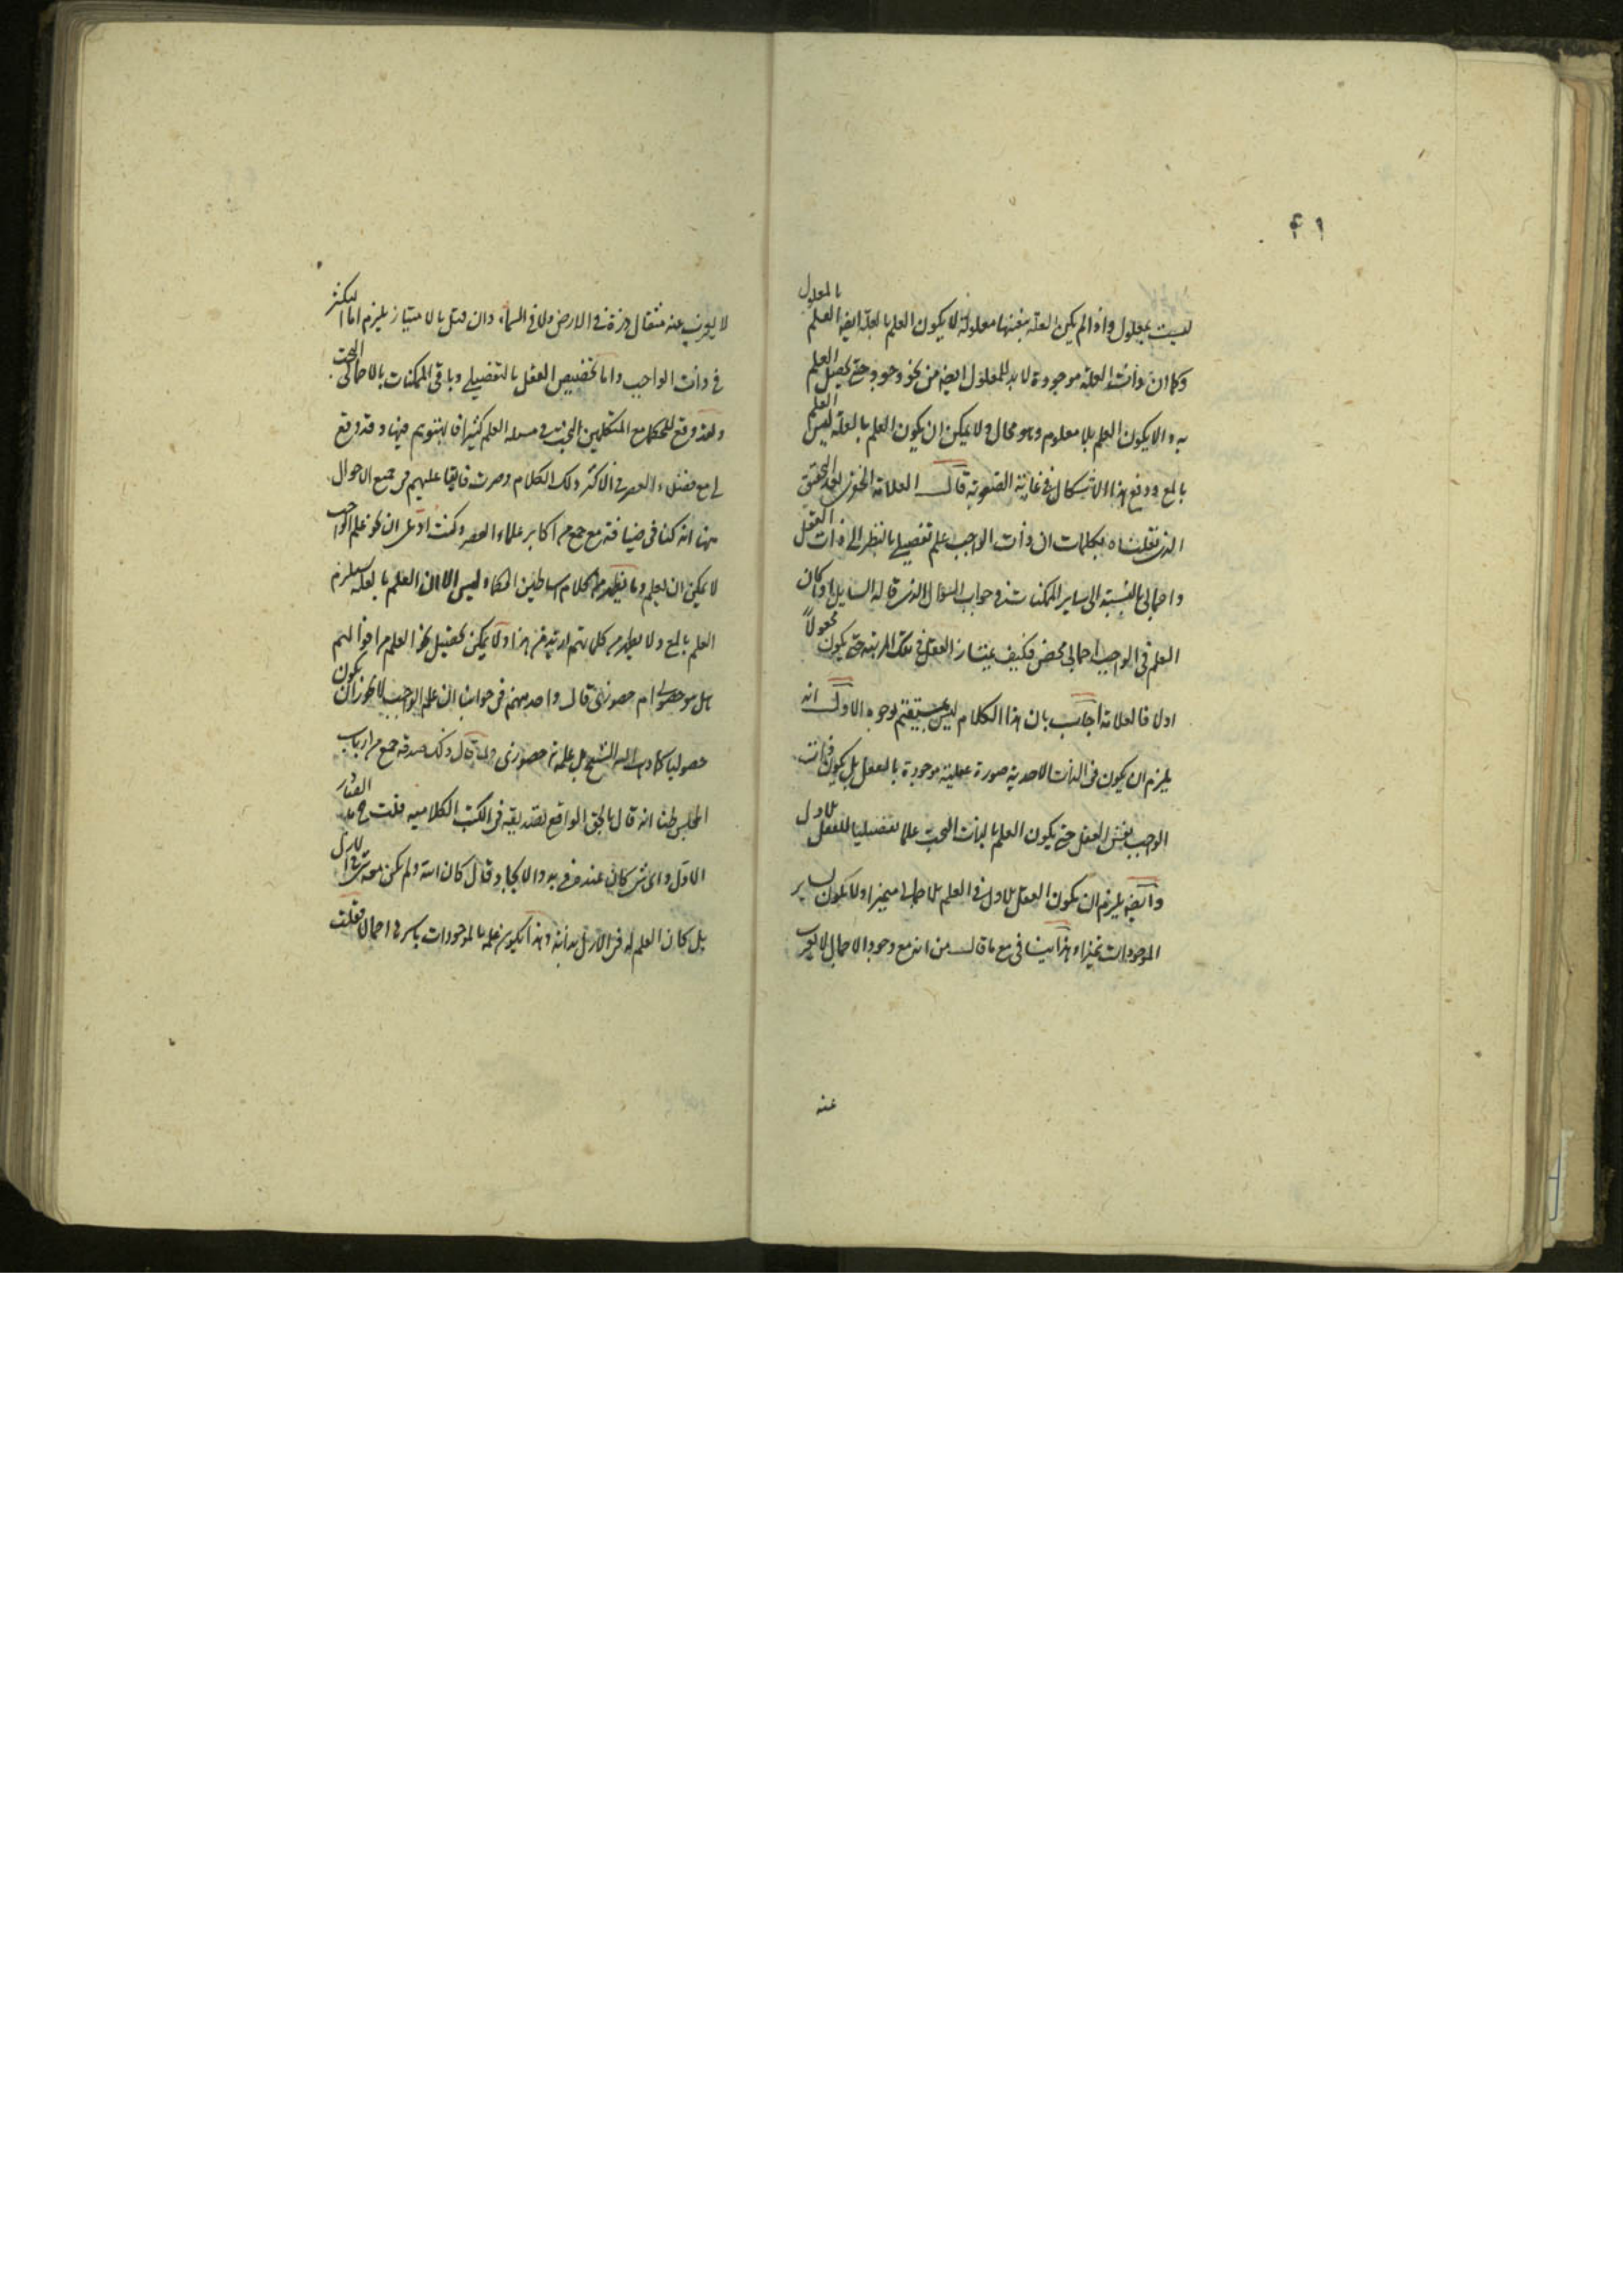 ۴۱
ليست بمعلول واذا لم يكن العلة بعينها معلولة لا يكون العلم بالعلة ايضا العلم بالمعلول
وكما ان ذات العلة موجودة لا بد للمعلول ايضا من نحو وجود حتى يحصل العلم
به والا يكون العلم بلا معلوم وهو محال ولا يمكن ان يكون العلم بالعلة ليس العلم
بالمع ودفع هذا الاشكال في غاية الصعوبة قال العلامة الخفرى لقد المحقق
الذى نقلناه بكلمات ان ذات الواجب علم تفصيلى بالنظر الى ذات العقل
واجمالى بالنسبة الى ساير الممكنات فى جواب السؤال الذى قاله السايل اذا كان
العلم فى الواجب اجمالى محض فكيف يمتاز العقل فى تلك المرتبة حتى يكون مجعولاً
اولا فالعلامة اجاب بان هذا الكلام ليس بمستقيم لوجوه الاول انه
يلزم ان يكون فى الذات الاحدية صورة علمية موجودة بالعقل بل يكون ذات
الواجب نفس العقل حتى يكون العلم بالذات البحت علما تفصيليا للعقل الاول
وايضا يلزم ان يكون العقل الاول فى العلم الاجمالى متميزا ولا يكون لساير
الموجودات تميزا وهذا ينافى مع ما قال من انه مع وجود الاجمال لا يعزب
عنه
لا يعزب عنه مثقال ذرة فى الارض ولا فى السماء وان قيل بالامتياز يلزم اما التكثر
فى ذات الواجب واما تخصيص العقل بالتفصيلى وباقى الممكنات بالاجمالى البحت
ولقد وقع للحكماء مع المتكلمين البحث فى مسئلة العلم كثيرا فيها وقد وقع
لى مع فضلاء العصر فى الاكثر ذلك الكلام وصرت فايقا عليهم فى جميع الاحوال
منها انه كنا فى ضيافة مع جمع من اكابر علماء العصر وكنت ادعى ان نحو علم الواجب
لا يمكن ان يعلم وما يظهر من كلام اساطين الحكماء ليس الا ان العلم بالعلة يستلزم
العلم بالمع ولا يظهر من كلماتهم ازيد من هذا ولا يمكن تحصيل نحو العلم من اقوالهم
هل هو حصولى ام حضورى قال واحد منهم فى جوابى ان علم الواجب لا يجوز ان يكون
حصوليا كما ذهب اليه الشيخ بل علمه حضورى ولما قال ذلك صدقه جمع من ارباب
المجلس ظنا انه قال بالحق الواقع لتصديقه فى الكتب الكلامية فقلت
الاول واى شىء كان عنده فى بدو الايجاد وقال كان الله ولم يكن معه شىء
بل كان العلم له فى الازل بذاته وهذا يكون علمه بالموجودات باسرها اجمالا فقلت